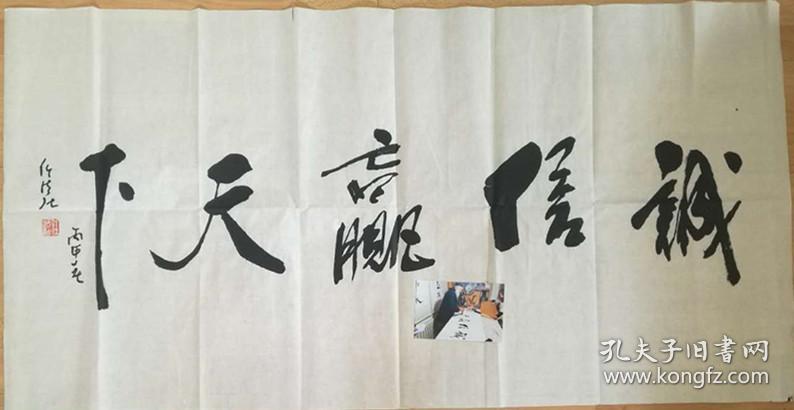 誠信贏天下
丙申春
孔夫子旧书网
www.kongfz.com